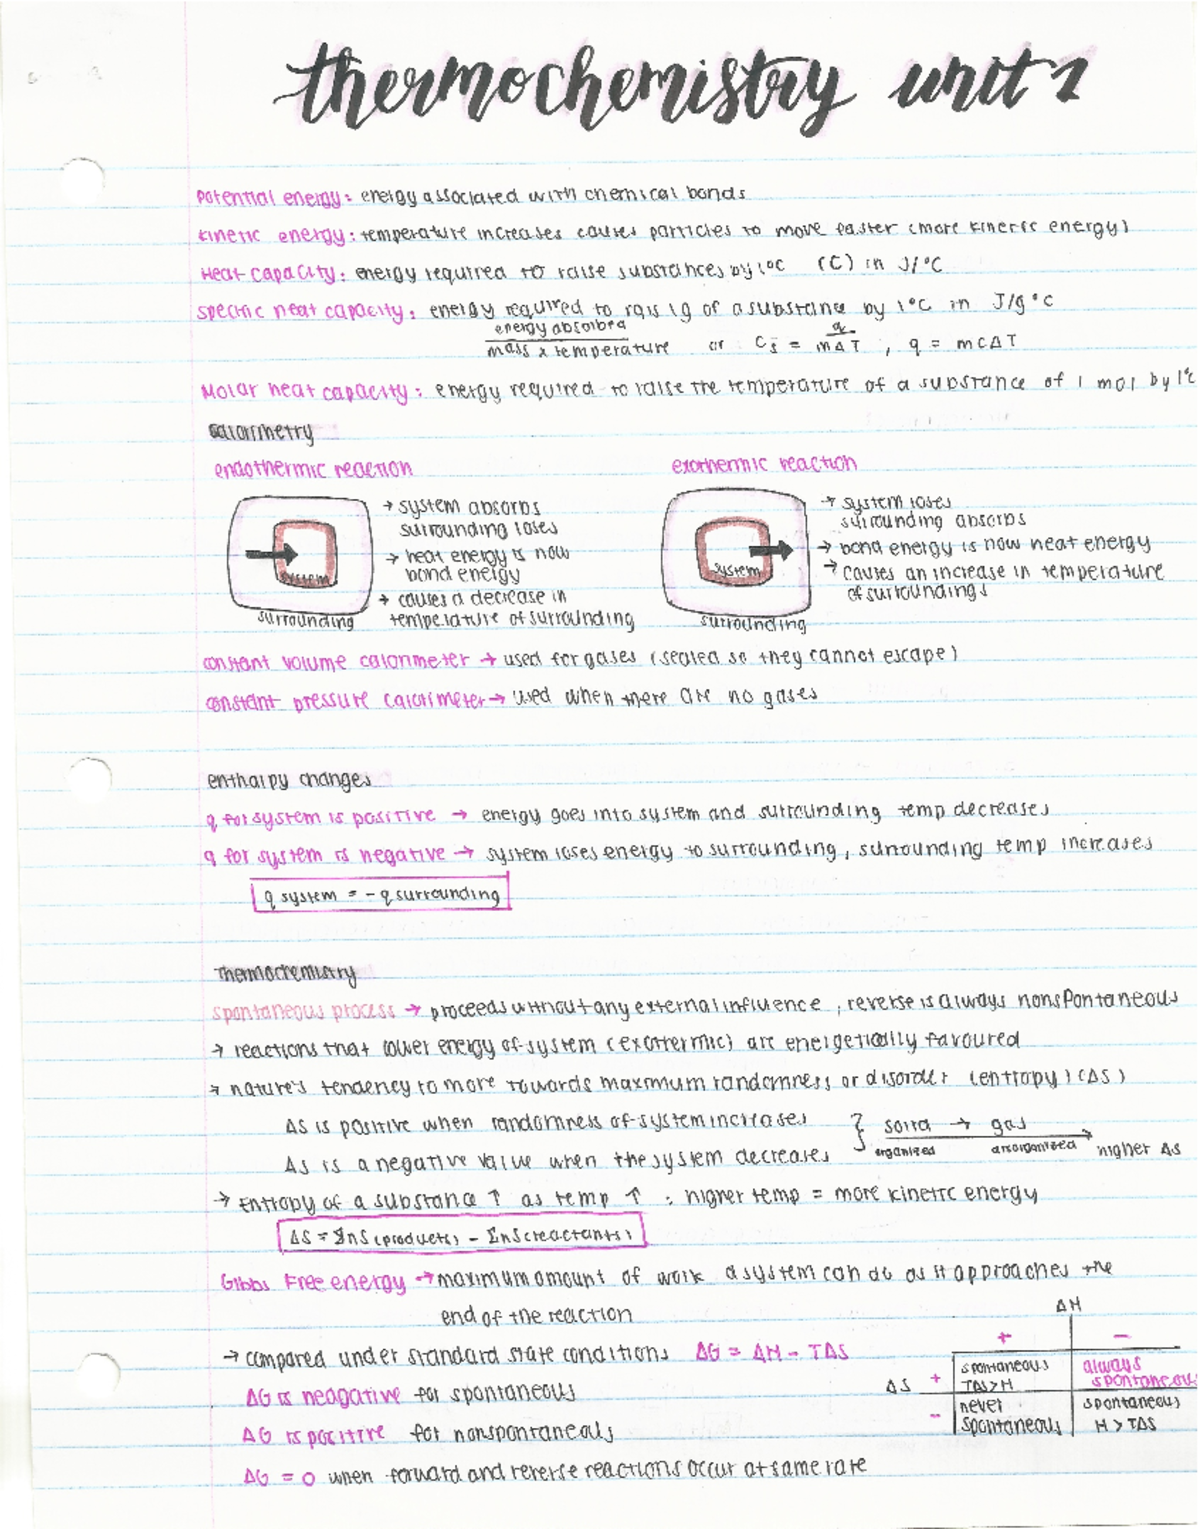 thermochemistry unit 1
Potential energy: energy associated with chemical bonds
Kinetic energy: temperature increases causes particles to move faster (more kinetic energy)
Heat capacity: energy required to raise substances by 1°C (C) in J/°C
Specific heat capacity: energy required to rais 1g of a substance by 1°C in J/g°C
energy absorbed / mass x temperature or Cs = q / mΔT , q = mcΔT
Molar heat capacity: energy required to raise the temperature of a substance of 1 mol by 1°C
calorimetry
endothermic reaction
→ system absorbs
surrounding loses
→ heat energy is now
bond energy
→ causes a decrease in
temperature of surrounding
system
surrounding
exothermic reaction
→ system loses
surrounding absorbs
→ bond energy is now heat energy
→ causes an increase in temperature
of surroundings
system
surrounding
constant volume calorimeter → used for gases (sealed so they cannot escape)
constant pressure calorimeter → used when there are no gases
enthalpy changes
q for system is positive → energy goes into system and surrounding temp decreases
q for system is negative → system loses energy to surrounding, surrounding temp increases
q system = - q surrounding
thermochemistry
spontaneous process → proceeds without any external influence, reverse is always nonspontaneous
→ reactions that lower energy of system (exothermic) are energetically favoured
→ nature's tendency to more towards maximum randomness or disorder (entropy) (ΔS)
ΔS is positive when randomness of system increases
ΔS is a negative value when the system decreases
} solid → gas
organized disorganized higher ΔS
→ Entropy of a substance ↑ as temp ↑ : higher temp = more kinetic energy
ΔS = ΣnS(products) - ΣnS(reactants)
Gibbs Free energy → maximum amount of work a system can do as it approaches the
end of the reaction
→ compared under standard state conditions ΔG = ΔH - TΔS
ΔG is neagative for spontaneous
ΔG is positive for nonspontaneous
ΔG = 0 when forward and reverse reactions occur at same rate
ΔH
+ -
ΔS + spontaneous TΔS>H always spontaneous
- never spontaneous spontaneous H > TΔS